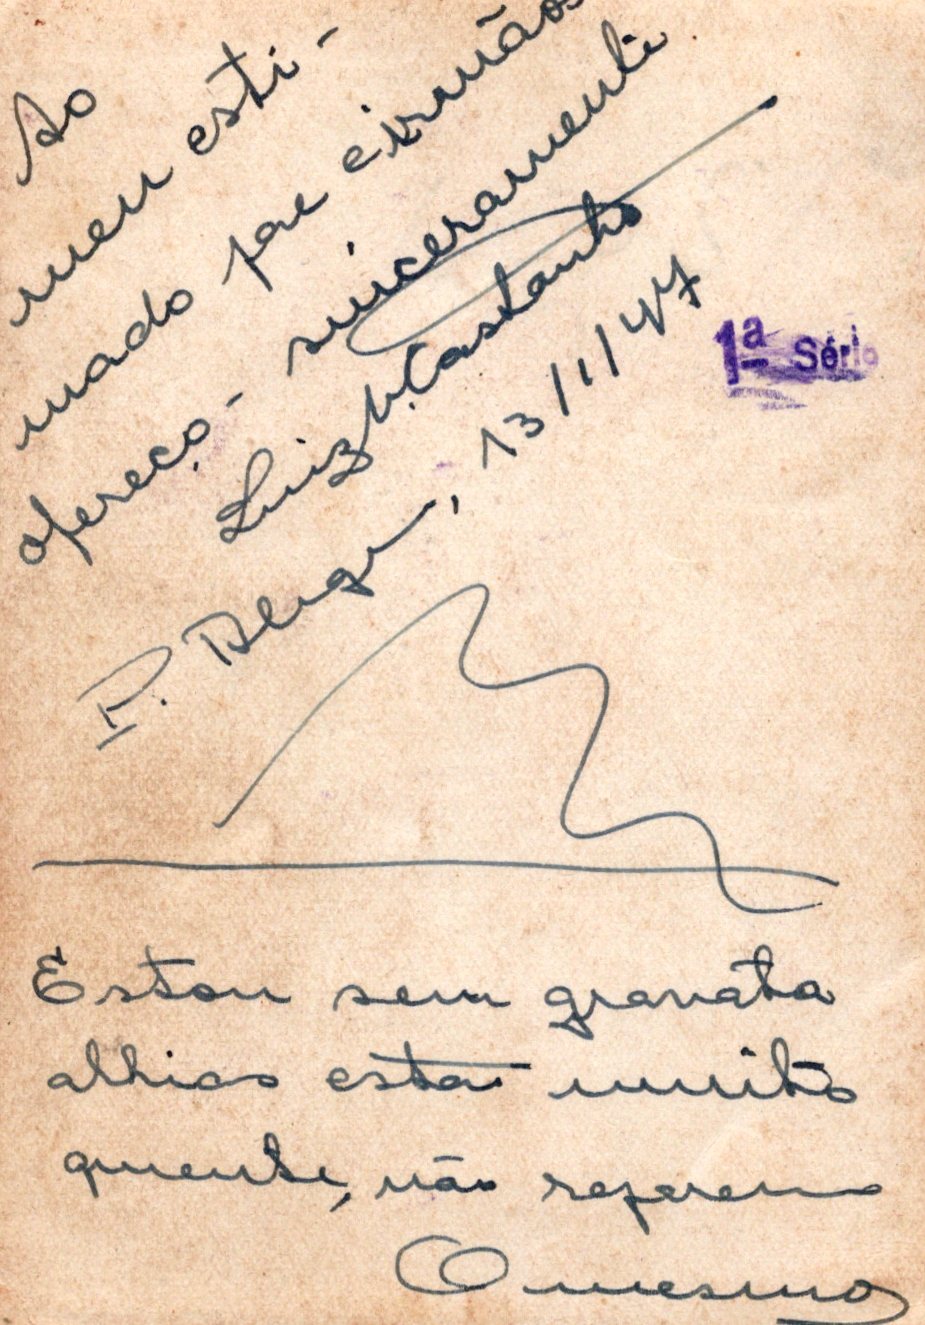 Ao
meu esti-
mado pae e irmãos
ofereço - sinceramente
Luiz Castanho
P. Alegre, 13/1/47
1ª Série
Estou sem gravata
alhias está muito
quente, não reparem
O mesmo